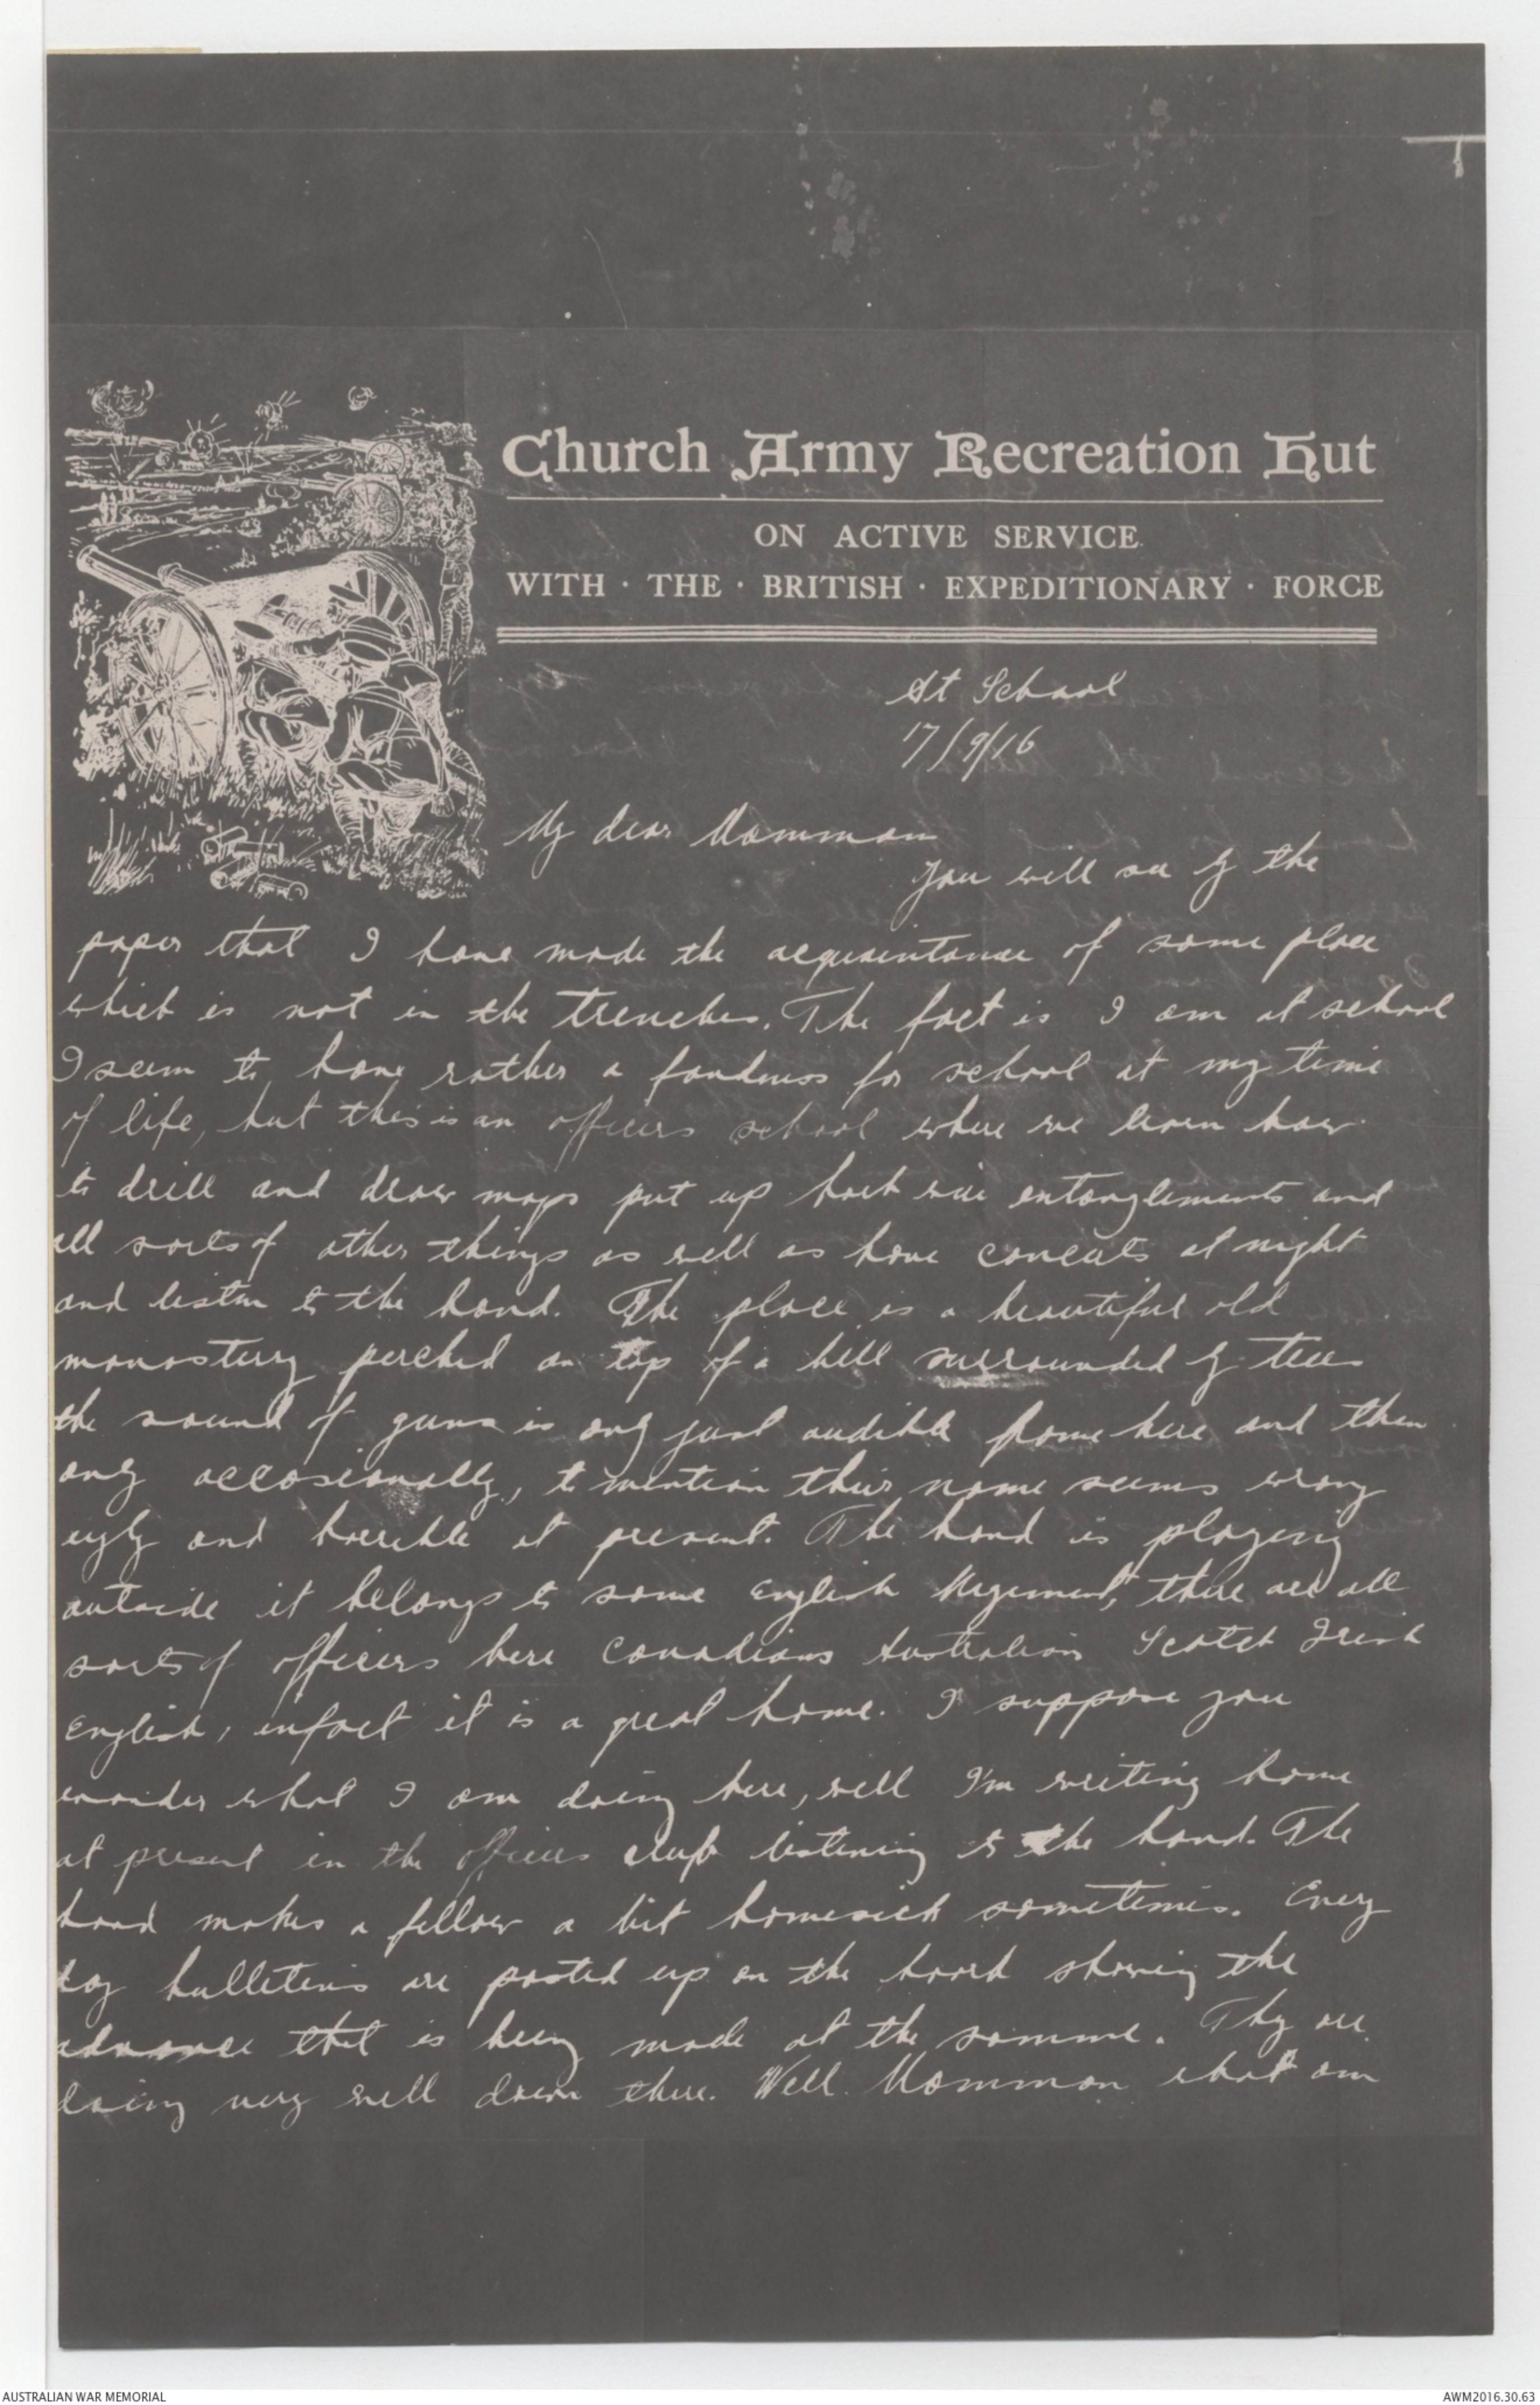 Church Army Recreation Hut
ON ACTIVE SERVICE
WITH · THE · BRITISH · EXPEDITIONARY · FORCE
At School
17/9/16
My dear Mamman
You will see by the
paper that I have made the acquaintance of some place
which is not in the trenches. The fact is I am at school
I seem to have rather a fondness for school at my time
of life, but this is an officers school where we learn how
to drill and draw maps put up barb wire entanglements and
all sorts of other things as well as have concerts at night
and listen to the band. The place is a beautiful old
monastery perched on top of a hill surrounded by trees
the sound of guns is only just audible from here and then
only occasionally, to mention their name seems wrong
ugly and horrible at present. The band is playing
outside it belongs to some English Regiment, there are all
sorts of officers here Canadians Australian Scotch Irish
English, infact it is a great home. I suppose you
wonder what I am doing here, well I'm writing home
at present in the officers club listening to the band. The
band makes a fellow a bit homesick sometimes. Every
day bulletins are posted up on the board showing the
advance that is being made at the somme. They are
doing very well down there. Well Mamman what am
AUSTRALIAN WAR MEMORIAL
AWM2016.30.63